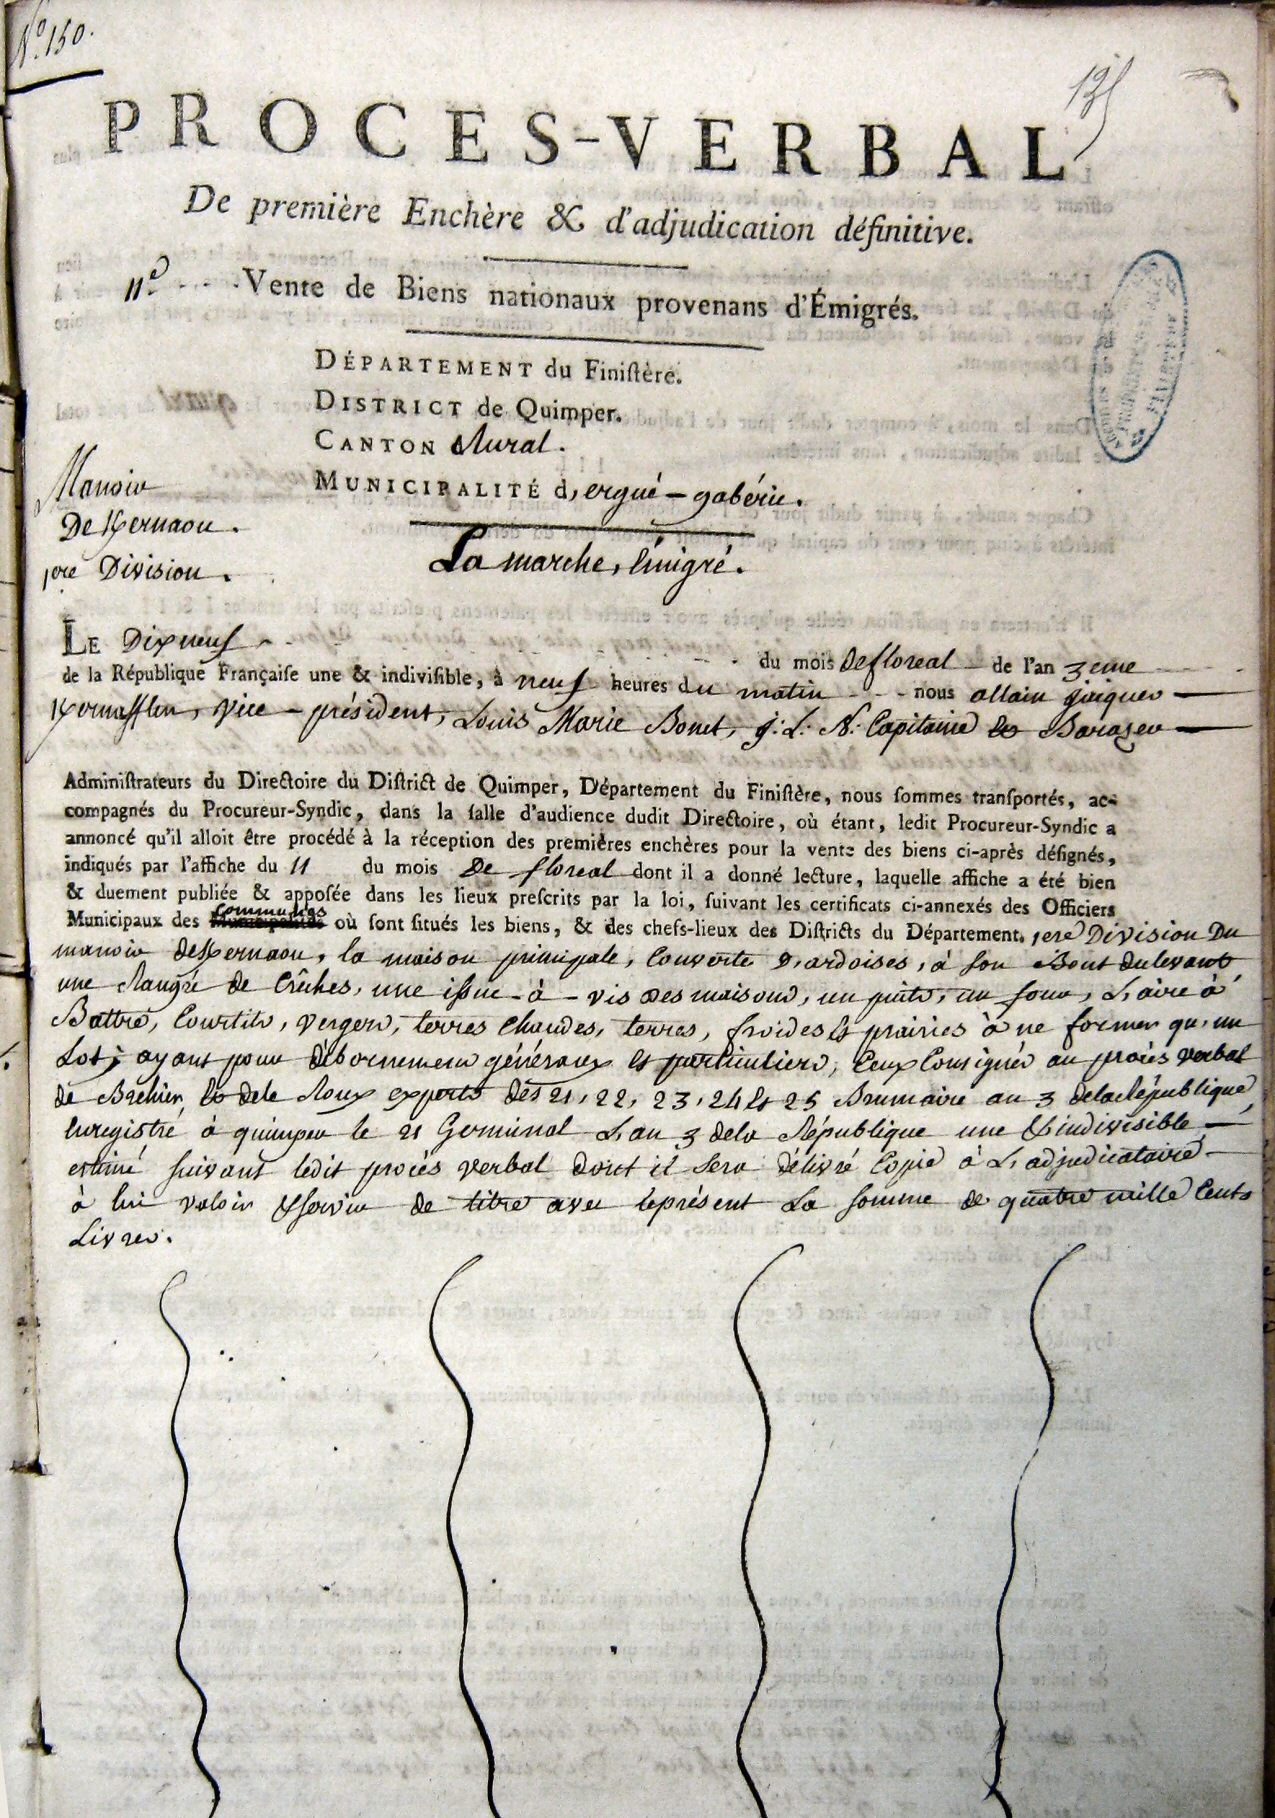 N.º 150.
135
PROCES-VERBAL
De première Enchère & d'adjudication définitive.
11.e Vente de Biens nationaux provenans d'Émigrés.
DÉPARTEMENT du Finiſtère.
DISTRICT de Quimper.
CANTON Rural.
MUNICIPALITÉ d'ergué-gabéric.
Manoir
De Kernaou.
1ere Division.
La marche, émigré.
LE Dix neuf du mois De floreal de l'an 3eme
de la République Françaiſe une & indiviſible, à neuf heures du matin nous allain jacques
Kernafflen, vice-président, Louis Marie Bonet, J. L. N. Capitaine et Barazer
Adminiſtrateurs du Directoire du Diſtrict de Quimper, Département du Finiſtère, nous ſommes tranſportés, ac-
compagnés du Procureur-Syndic, dans la ſalle d'audience dudit Directoire, où étant, ledit Procureur-Syndic a
annoncé qu'il alloit être procédé à la réception des premières enchères pour la vente des biens ci-après déſignés,
indiqués par l'affiche du 11 du mois De floreal dont il a donné lecture, laquelle affiche a été bien
& duement publiée & appoſée dans les lieux preſcrits par la loi, ſuivant les certificats ci-annexés des Officiers
Municipaux des Communes où ſont ſitués les biens, & des chefs-lieux des Diſtricts du Département. 1ere Division Du
manoir de Kernaou, la maison principale, Couverte D'ardoises, à son Bout du levant
une Rangée de Crêches, une issue-à-vis des maisons, un puits, un four, L'aire à
Battre, Courtils, vergers, terres Chaudes, terres, froides et prairies à ne former qu'un
Lot; ayant pour débornemens généraux et particuliers, Ceux Consignés au procés verbal
de Brehier et de le Roux experts des 21, 22, 23, 24 et 25 Brumaire an 3 de la République
Enregistré à quimper le 21 Germinal L'an 3 de la République une & indivisible
estimé suivant ledit procés verbal dont il sera délivré Copie à L'adjudicataire
à lui valoir & servir de titre avec le présent La somme de quatre mille Cents
Livres.